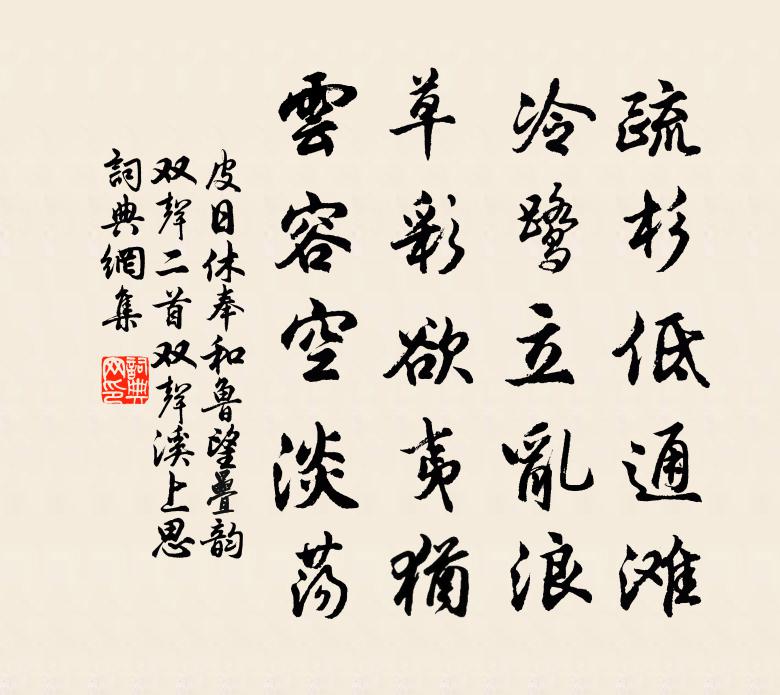 疏杉低通滩
冷鹭立亂浪
草彩欲夷猶
雲容空淡荡
皮日休奉和魯望疊韵
双聲二首双聲溪上思
詞典網集
詞典网印